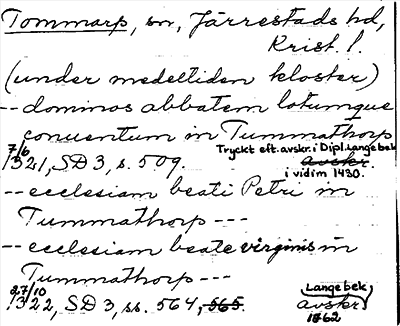 Tommarp, sn, Järrestads hd,
Krist. l.
(under medeltiden kloster)
-- dominos abbatem totumque
conuentum in Tummathorp
7/6 1321, SD 3, s. 509. Tryckt eft. avskr. i Dipl. Langebek
avskr.
i vidim 1430.
-- ecclesiam beati Petri in
Tummathorp ---
-- ecclesiam beate virginis in
Tummathorp ---
27/10 1322, SD 3, ss. 564, 565. Langebek
avskr.
1862